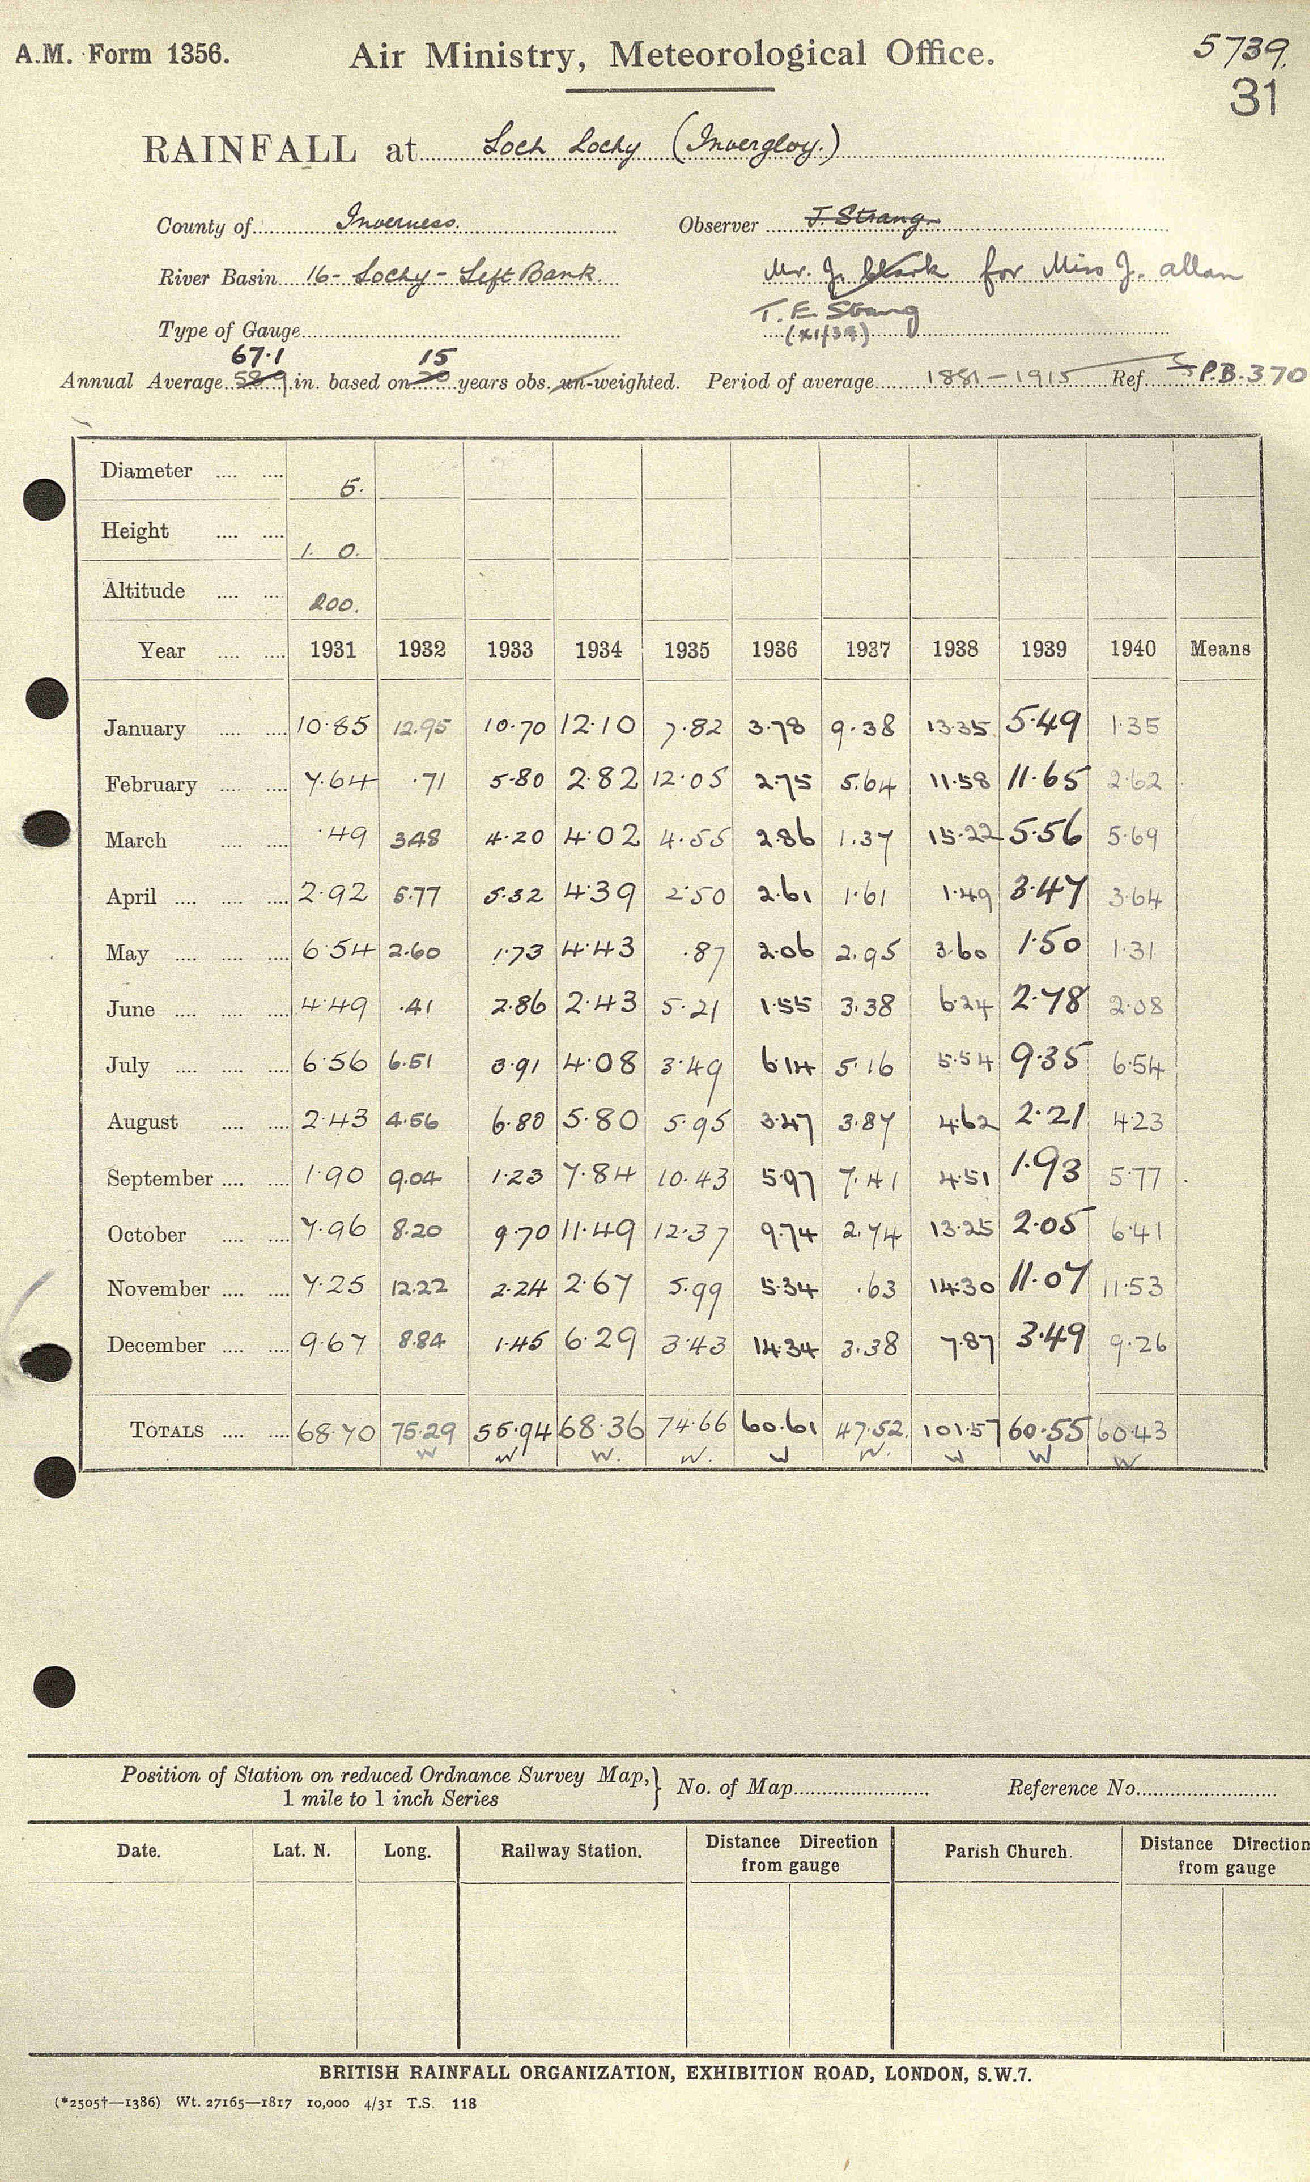 A.M. Form 1356. Air Ministry, Meteorological Office. 5739.
31
RAINFALL at Loch Lochy (Invergloy.)
County of Inverness. Observer J. Strang.
River Basin 16 - Lochy - Left Bank. Mr. J. Clark for Miss J. Allan
T. E. Strang
Type of Gauge (XI/39)
67.1 15
Annual Average 58.9 in. based on 20 years obs. un-weighted. Period of average 1881-1915 Ref. P.B. 370
Diameter 5.
Height 1. 0.
Altitude 200.
Year 1931 1932 1933 1934 1935 1936 1937 1938 1939 1940 Means
January 10.85 12.95 10.70 12.10 7.82 3.78 9.38 13.35 5.49 1.35
February 7.64 .71 5.80 2.82 12.05 2.75 5.64 11.58 11.65 2.62
March .49 3.48 4.20 4.02 4.55 2.86 1.37 15.22 5.56 5.69
April 2.92 5.77 5.32 4.39 2.50 2.61 1.61 1.49 3.47 3.64
May 6.54 2.60 1.73 4.43 .87 2.06 2.95 3.60 1.50 1.31
June 4.49 .41 2.86 2.43 5.21 1.55 3.38 6.24 2.78 2.08
July 6.56 6.51 3.91 4.08 3.49 6.14 5.16 5.54 9.35 6.54
August 2.43 4.56 6.80 5.80 5.95 3.47 3.87 4.62 2.21 4.23
September 1.90 9.04 1.23 7.84 10.43 5.97 7.41 4.51 1.93 5.77
October 7.96 8.20 9.70 11.49 12.37 9.74 2.74 13.25 2.05 6.41
November 7.25 12.22 2.24 2.67 5.99 5.34 .63 14.30 11.07 11.53
December 9.67 8.84 1.45 6.29 3.43 14.34 3.38 7.87 3.49 9.26
TOTALS 68.70 75.29 55.94 68.36 74.66 60.61 47.52 101.57 60.55 60.43
W W W. W. W W. W W W
Position of Station on reduced Ordnance Survey Map, } No. of Map Reference No.
1 mile to 1 inch Series
Date. Lat. N. Long. Railway Station. Distance Direction Parish Church. Distance Direction
from gauge from gauge
BRITISH RAINFALL ORGANIZATION, EXHIBITION ROAD, LONDON, S.W.7.
(*2505†—1386) Wt. 27165—1817 10,000 4/31 T.S. 118